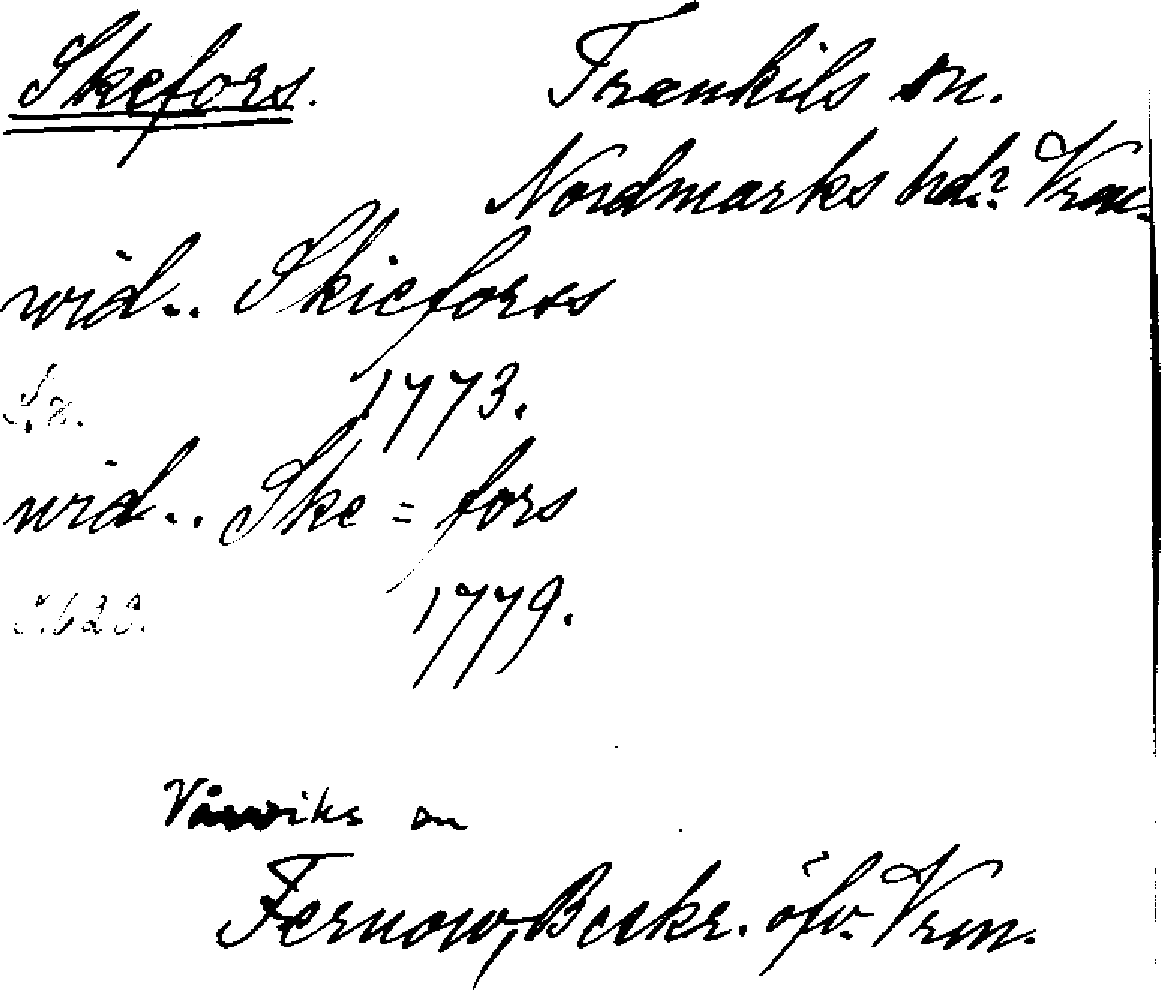 Skefors. Trankils sn.
Nordmarks hd.? Vrm.
wid.. Skieforss
S. 2. 1773.
wid.. Ske=fors
S. 623. 1779.
Vårviks sn
Fernow, Beskr. öfv. Vrm.